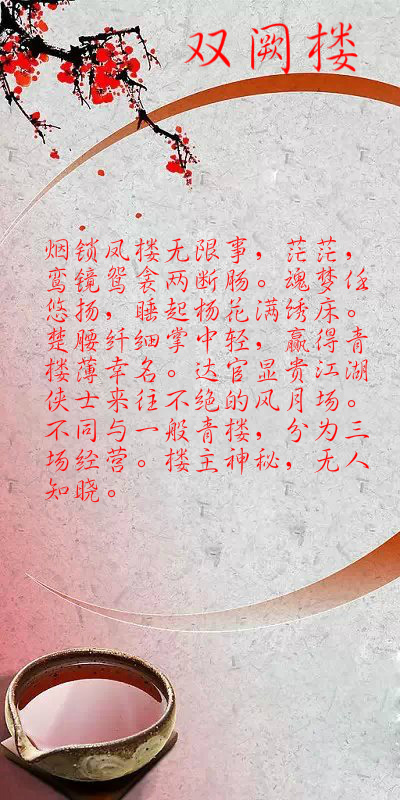 双阙楼
烟锁凤楼无限事，茫茫，
鸾镜鸳衾两断肠。魂梦任
悠扬，睡起杨花满绣床。
楚腰纤细掌中轻，赢得青
楼薄幸名。达官显贵江湖
侠士来往不绝的风月场。
不同与一般青楼，分为三
场经营。楼主神秘，无人
知晓。